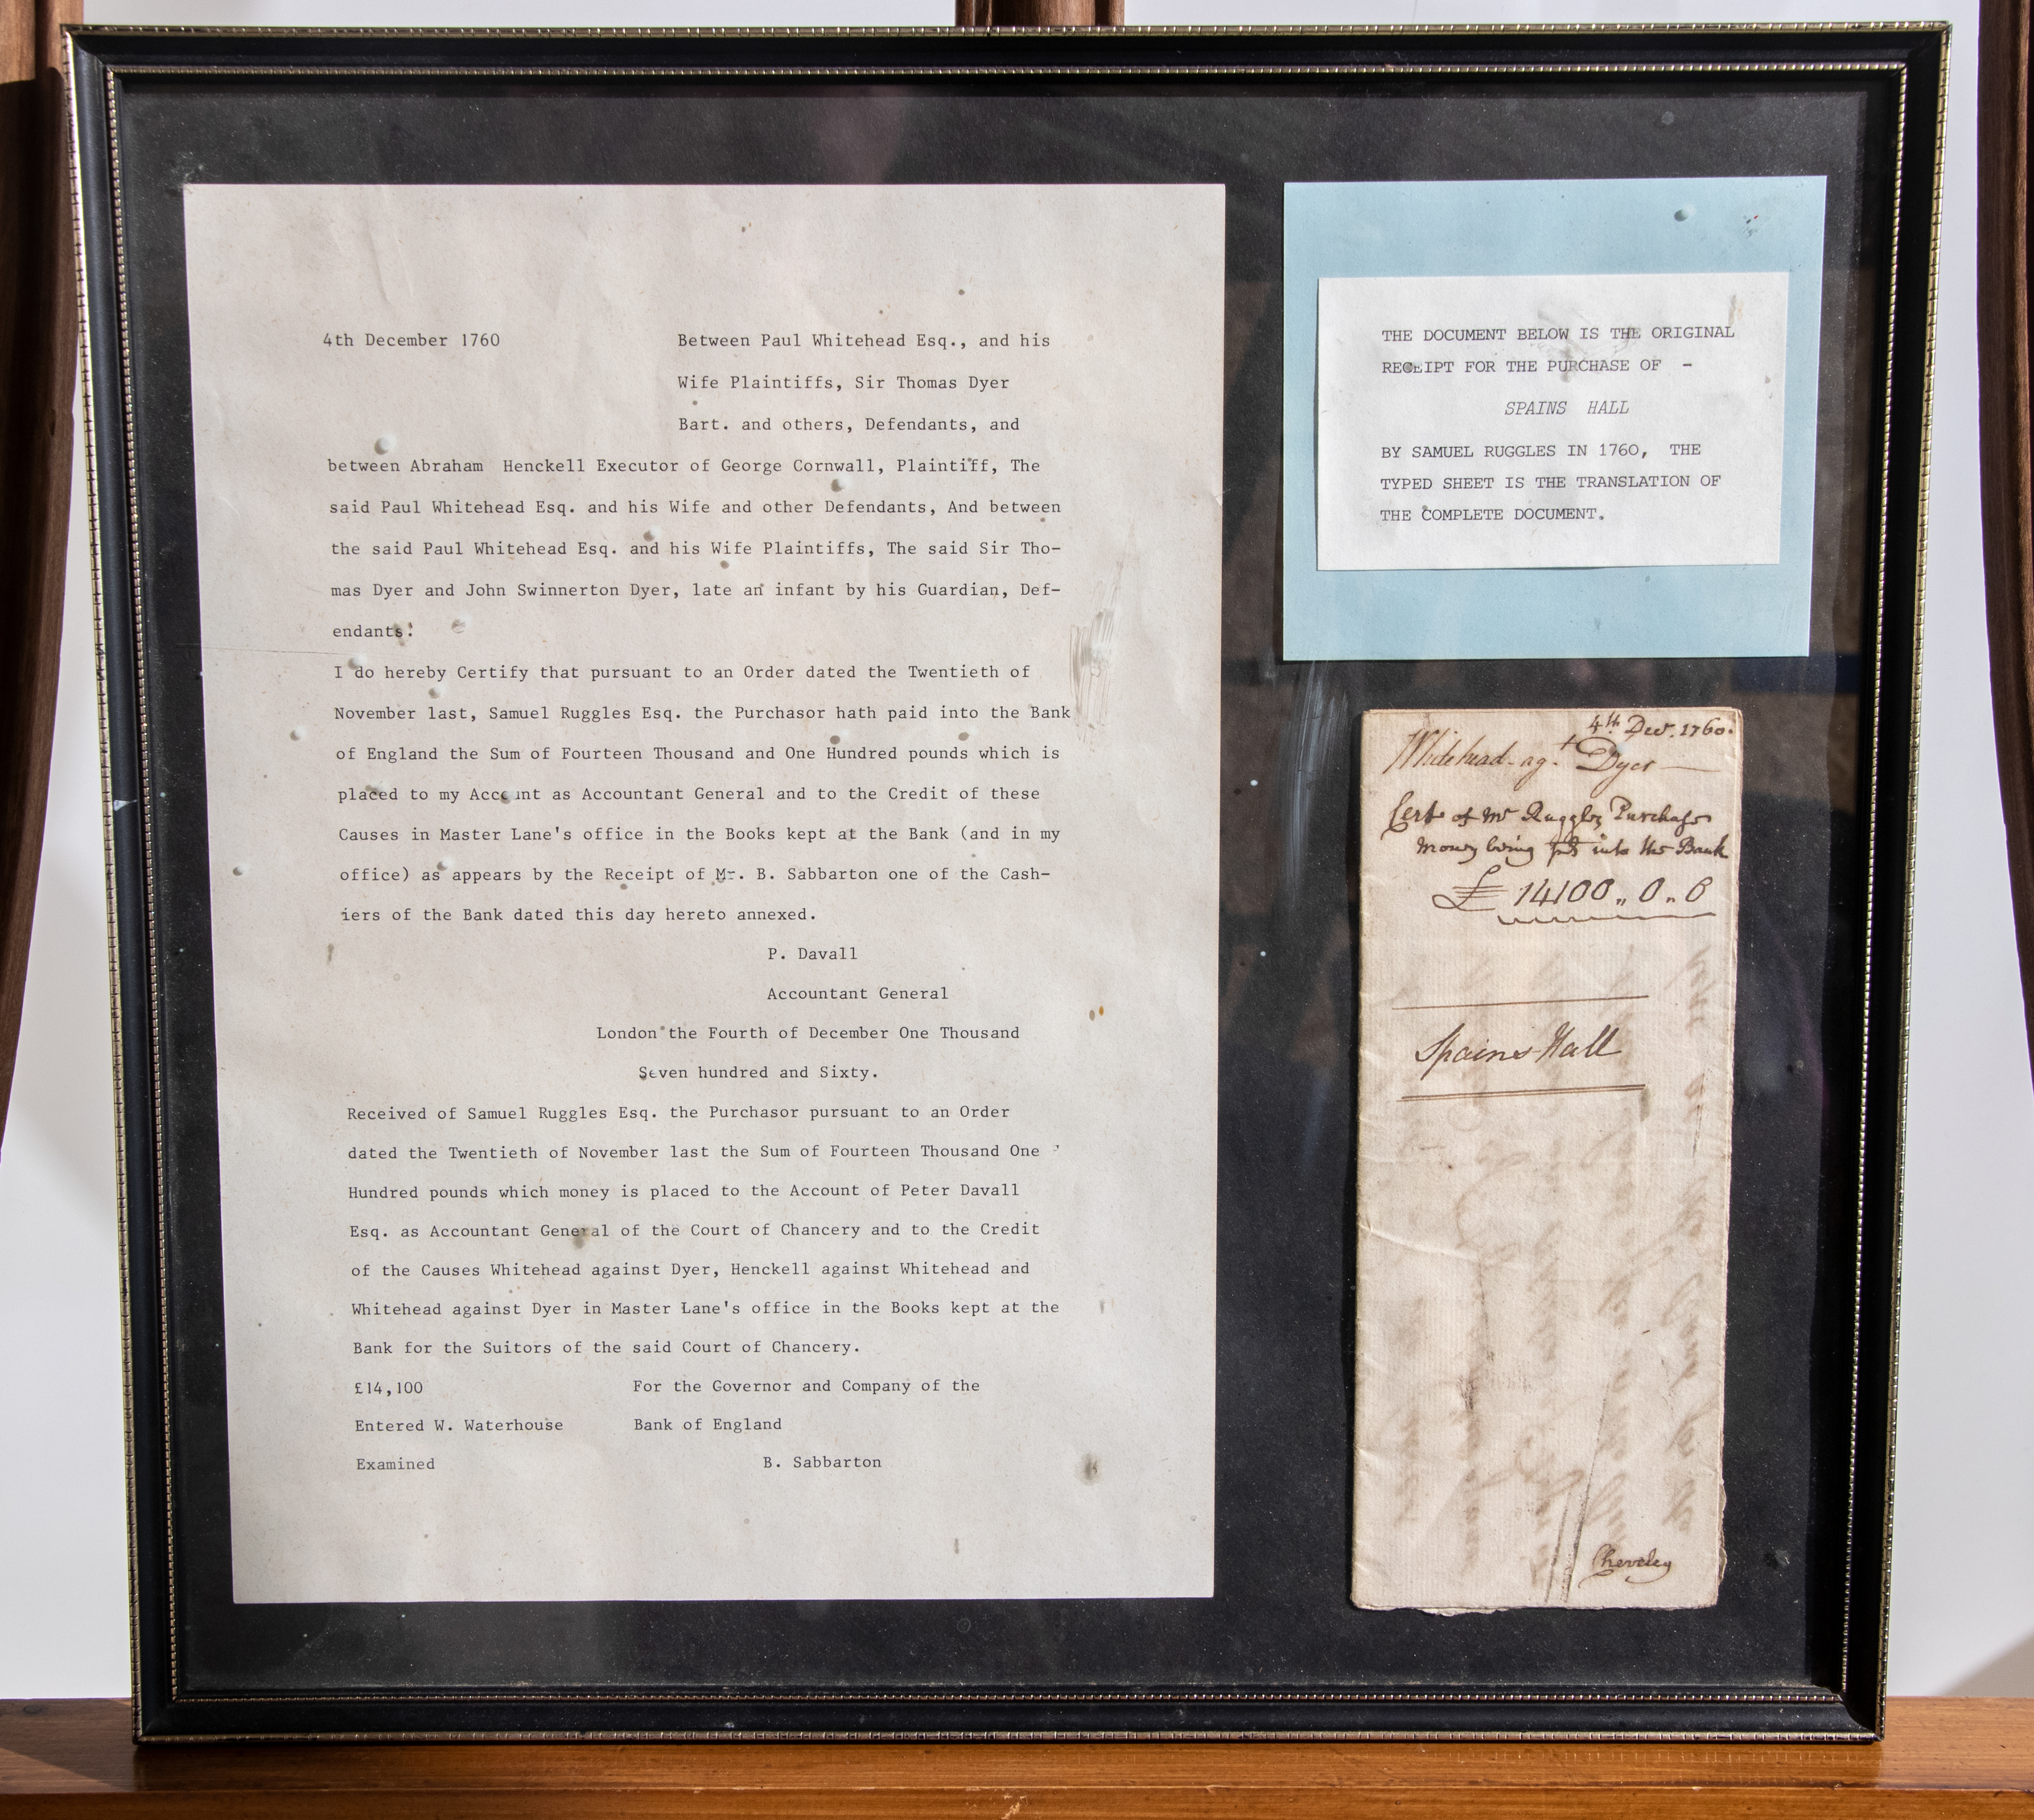 4th December 1760
Between Paul Whitehead Esq., and his
Wife Plaintiffs, Sir Thomas Dyer
Bart. and others, Defendants, and
between Abraham Henckell Executor of George Cornwall, Plaintiff, The
said Paul Whitehead Esq. and his Wife and other Defendants, And between
the said Paul Whitehead Esq. and his Wife Plaintiffs, The said Sir Tho-
mas Dyer and John Swinnerton Dyer, late an infant by his Guardian, Def-
endants:
I do hereby Certify that pursuant to an Order dated the Twentieth of
November last, Samuel Ruggles Esq. the Purchasor hath paid into the Bank
of England the Sum of Fourteen Thousand and One Hundred pounds which is
placed to my Account as Accountant General and to the Credit of these
Causes in Master Lane's office in the Books kept at the Bank (and in my
office) as appears by the Receipt of Mr. B. Sabbarton one of the Cash-
iers of the Bank dated this day hereto annexed.
P. Davall
Accountant General
London the Fourth of December One Thousand
Seven hundred and Sixty.
Received of Samuel Ruggles Esq. the Purchasor pursuant to an Order
dated the Twentieth of November last the Sum of Fourteen Thousand One
Hundred pounds which money is placed to the Account of Peter Davall
Esq. as Accountant General of the Court of Chancery and to the Credit
of the Causes Whitehead against Dyer, Henckell against Whitehead and
Whitehead against Dyer in Master Lane's office in the Books kept at the
Bank for the Suitors of the said Court of Chancery.
£14,100 For the Governor and Company of the
Entered W. Waterhouse Bank of England
Examined B. Sabbarton
THE DOCUMENT BELOW IS THE ORIGINAL
RECEIPT FOR THE PURCHASE OF -
SPAINS HALL
BY SAMUEL RUGGLES IN 1760, THE
TYPED SHEET IS THE TRANSLATION OF
THE COMPLETE DOCUMENT.
4th Decr. 1760.
Whitehead agt. Dyer
Certe of Mr Ruggles Purchase
money being pd into the Bank
£14100..0..0
Spains Hall
Cheveley